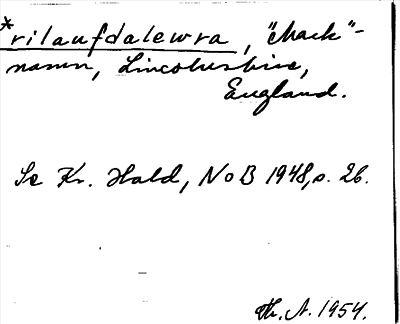 *rilaufdalewra, "mark"-
namn, Lincolnshire,
England.
Se Kr. Hald, NoB 1948, s. 26.
Th. A. 1954.